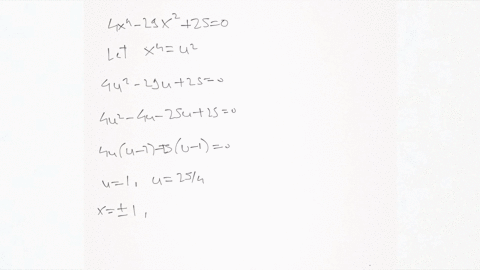 4x⁴-29x²+25=0
Let x⁴=u²
4u²-29u+25=0
4u²-4u-25u+25=0
4u(u-1)-25(u-1)=0
u=1, u=25/4
x=±1,